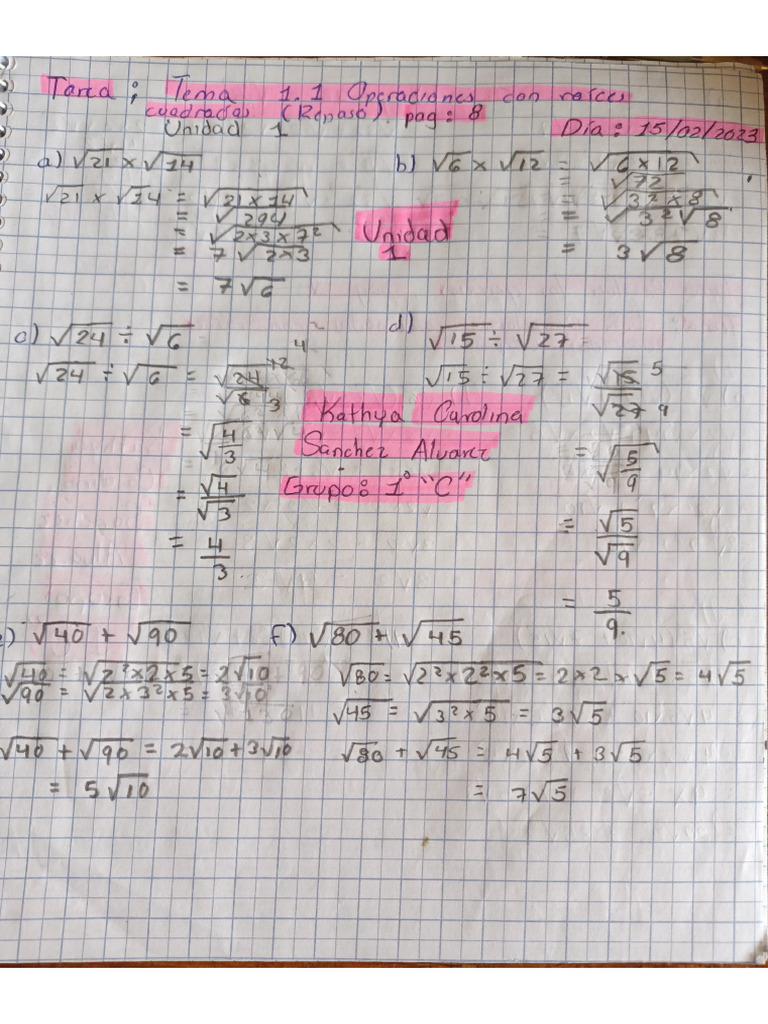 Tarea ; Tema 1.1 Operaciones con raíces
cuadradas (Repaso) pag: 8
Unidad 1
Día : 15/02/2023
a) √21 x √14
√21 x √14 = √21 x 14
= √294
= √2x3x7²
= 7 √2x3
= 7√6
b) √6 x √12 = √6x12
= √72
= √3² x 8
= √3² √8
= 3√8
Unidad
1
c) √24 ÷ √6
√24 ÷ √6 = √24 12 4 / √6 3
= √4/3
= √4/√3
= 4/3
d) √15 ÷ √27
√15 ÷ √27 = √15 5 / √27 9
= √5/9
= √5/√9
= 5/9.
Kathya Carolina
Sanchez Alvarez
Grupo: 1° "C"
) √40 + √90
√40 = √2²x2x5 = 2√10
√90 = √2x3²x5 = 3√10
√40 + √90 = 2√10+3√10
= 5√10
f) √80 + √45
√80 = √2²x2²x5 = 2x2x√5 = 4√5
√45 = √3²x5 = 3√5
√80 + √45 = 4√5 + 3√5
= 7√5